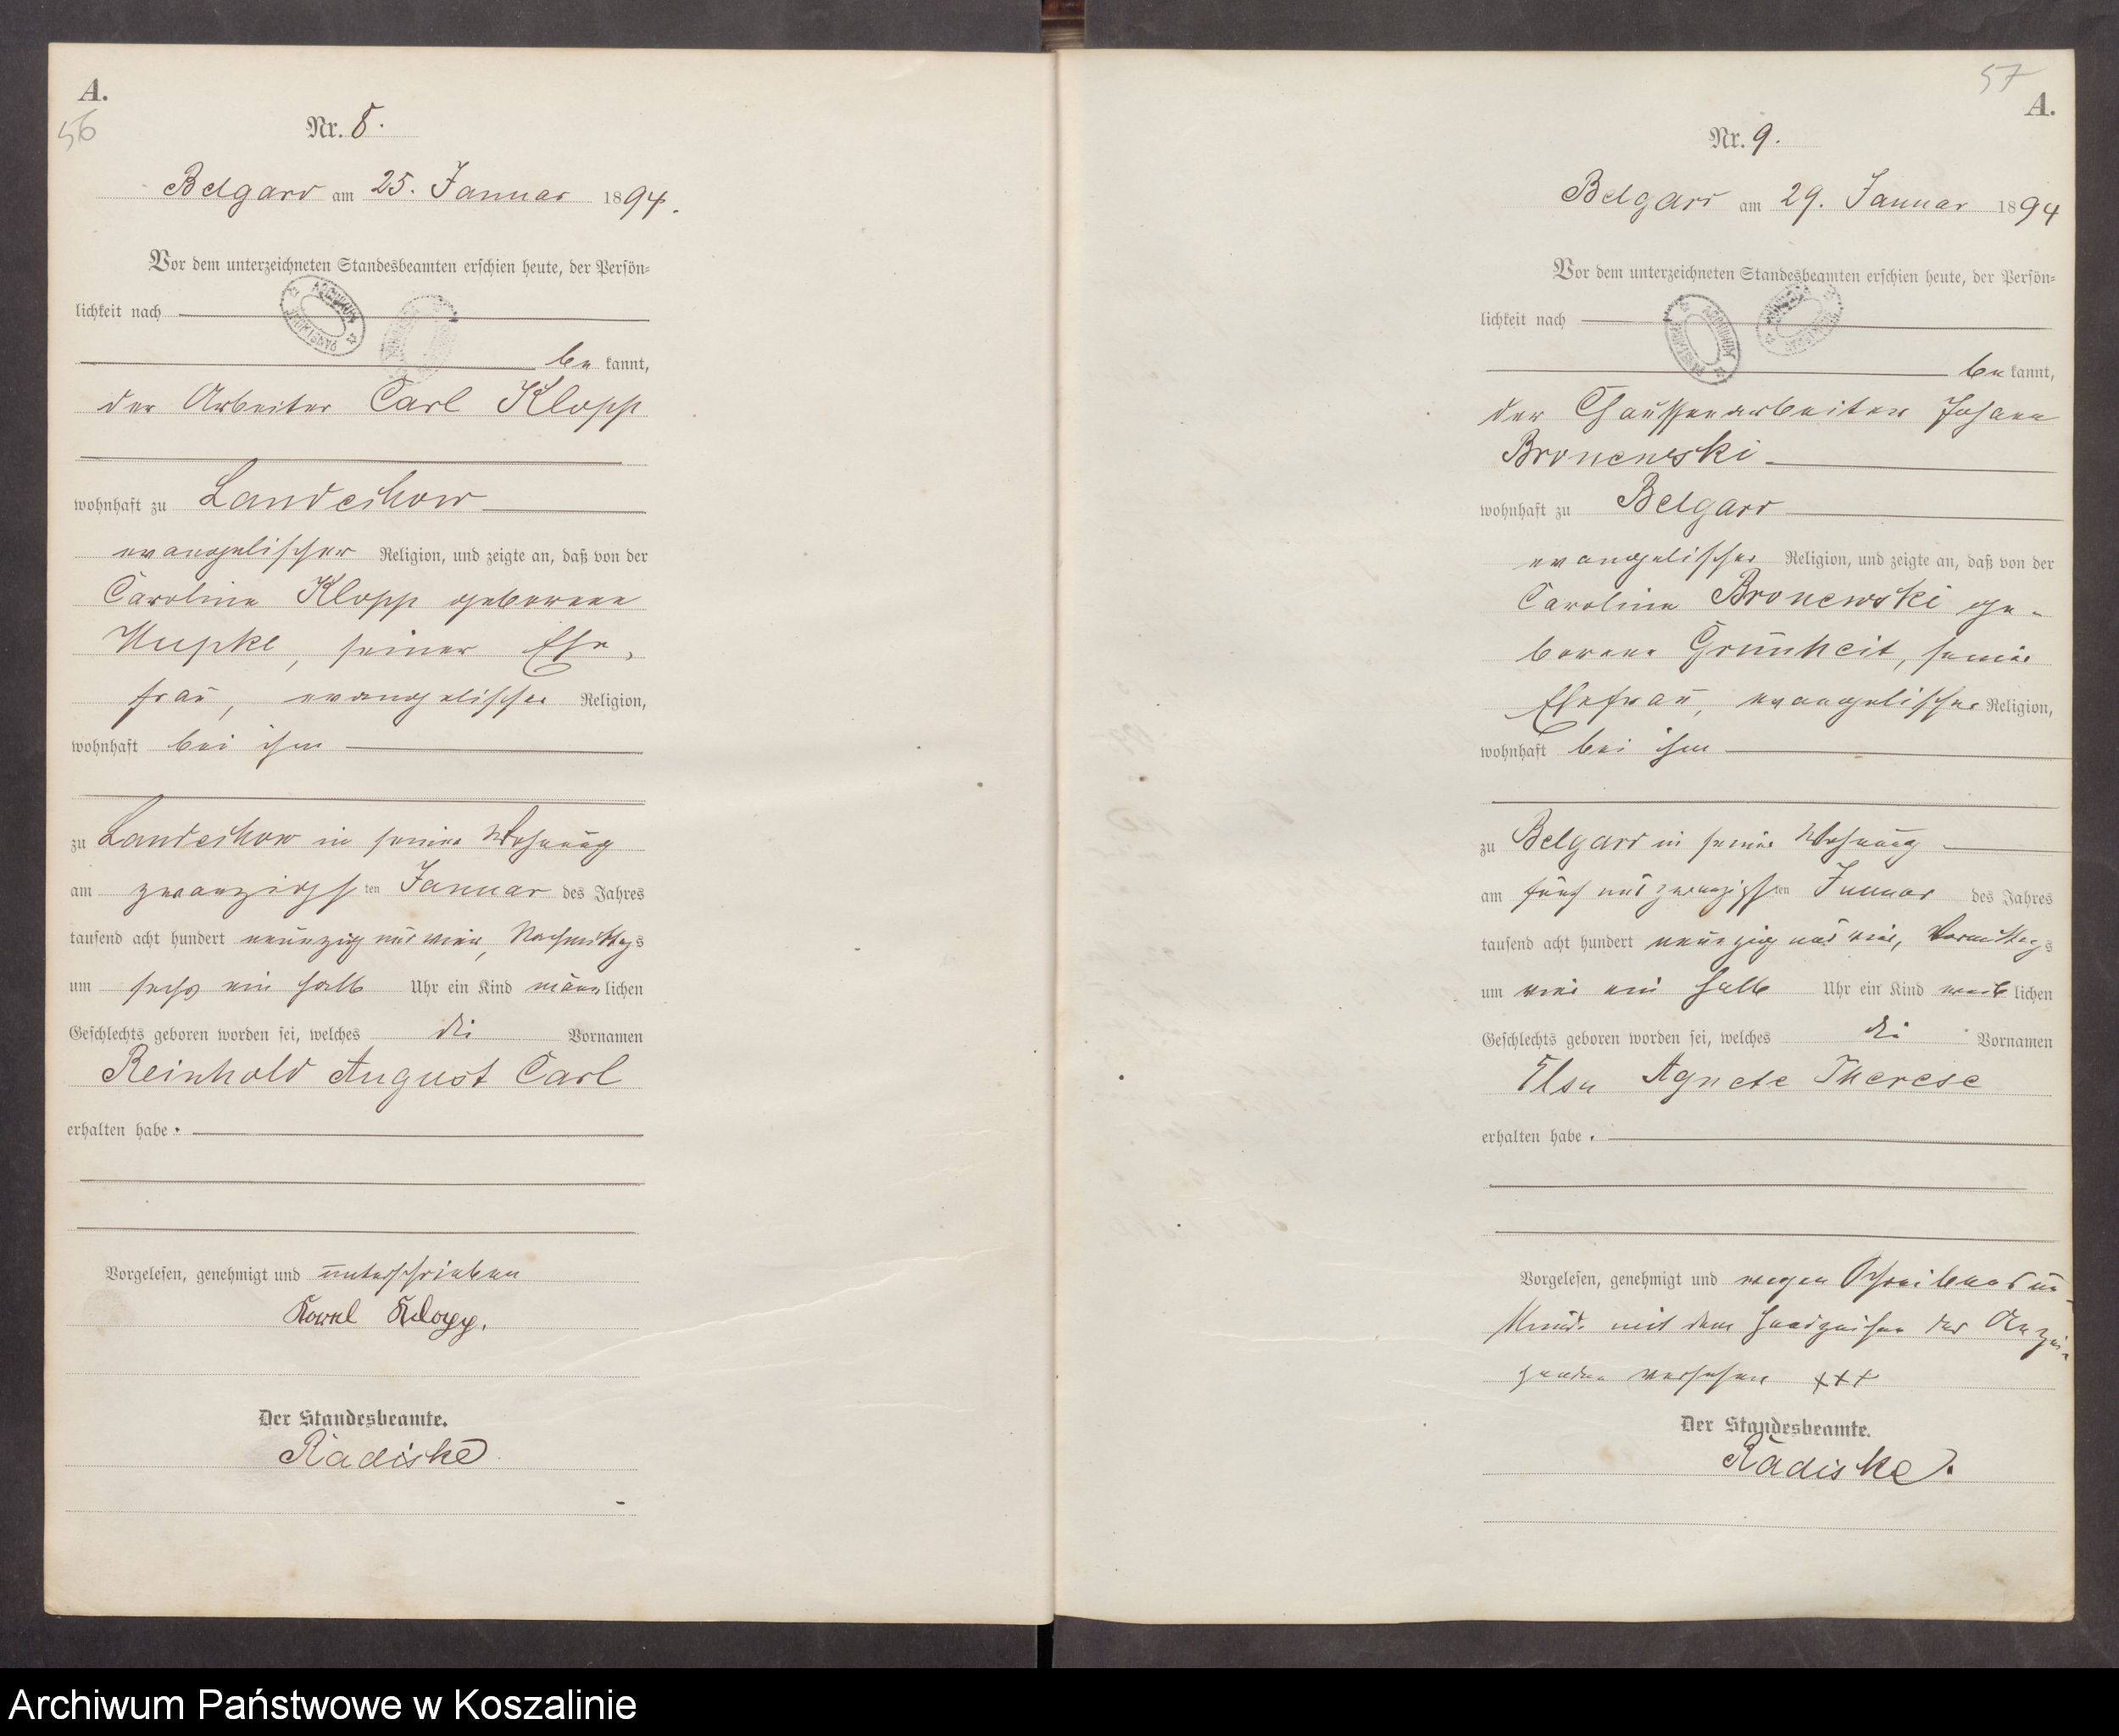 A.
56
Nr. 8.
Belgard am 25. Januar 1894.
Vor dem unterzeichneten Standesbeamten erschien heute, der Persön-
lichkeit nach
bekannt,
der Arbeiter Carl Klopp
wohnhaft zu Landeckow
evangelischer Religion, und zeigte an, daß von der
Caroline Klopp geborene
Kupke, seiner Ehe-
frau, evangelischer Religion,
wohnhaft bei ihm
zu Landeckow in seiner Wohnung
am zwanzigsten Januar des Jahres
tausend acht hundert neunzig und vier, Nachmittags
um sechs ein halb Uhr ein Kind männlichen
Geschlechts geboren worden sei, welches die Vornamen
Reinhold August Carl
erhalten habe.
Vorgelesen, genehmigt und unterschrieben
Karl Klopp.
Der Standesbeamte.
Radiske
57
A.
Nr. 9.
Belgard am 29. Januar 1894
Vor dem unterzeichneten Standesbeamten erschien heute, der Persön-
lichkeit nach
bekannt,
der Chausseearbeiter Johann
Bronewski
wohnhaft zu Belgard
evangelischer Religion, und zeigte an, daß von der
Caroline Bronewski ge-
borene Grünheit, seiner
Ehefrau, evangelischer Religion,
wohnhaft bei ihm
zu Belgard in seiner Wohnung
am fünf und zwanzigsten Januar des Jahres
tausend acht hundert neunzig und vier, Vormittags
um vier ein halb Uhr ein Kind weiblichen
Geschlechts geboren worden sei, welches die Vornamen
Elsa Agnete Therese
erhalten habe.
Vorgelesen, genehmigt und wegen Schreibensun-
kunde mit dem Handzeichen des Anzei-
genden versehen +++
Der Standesbeamte.
Radiske.
Archiwum Państwowe w Koszalinie